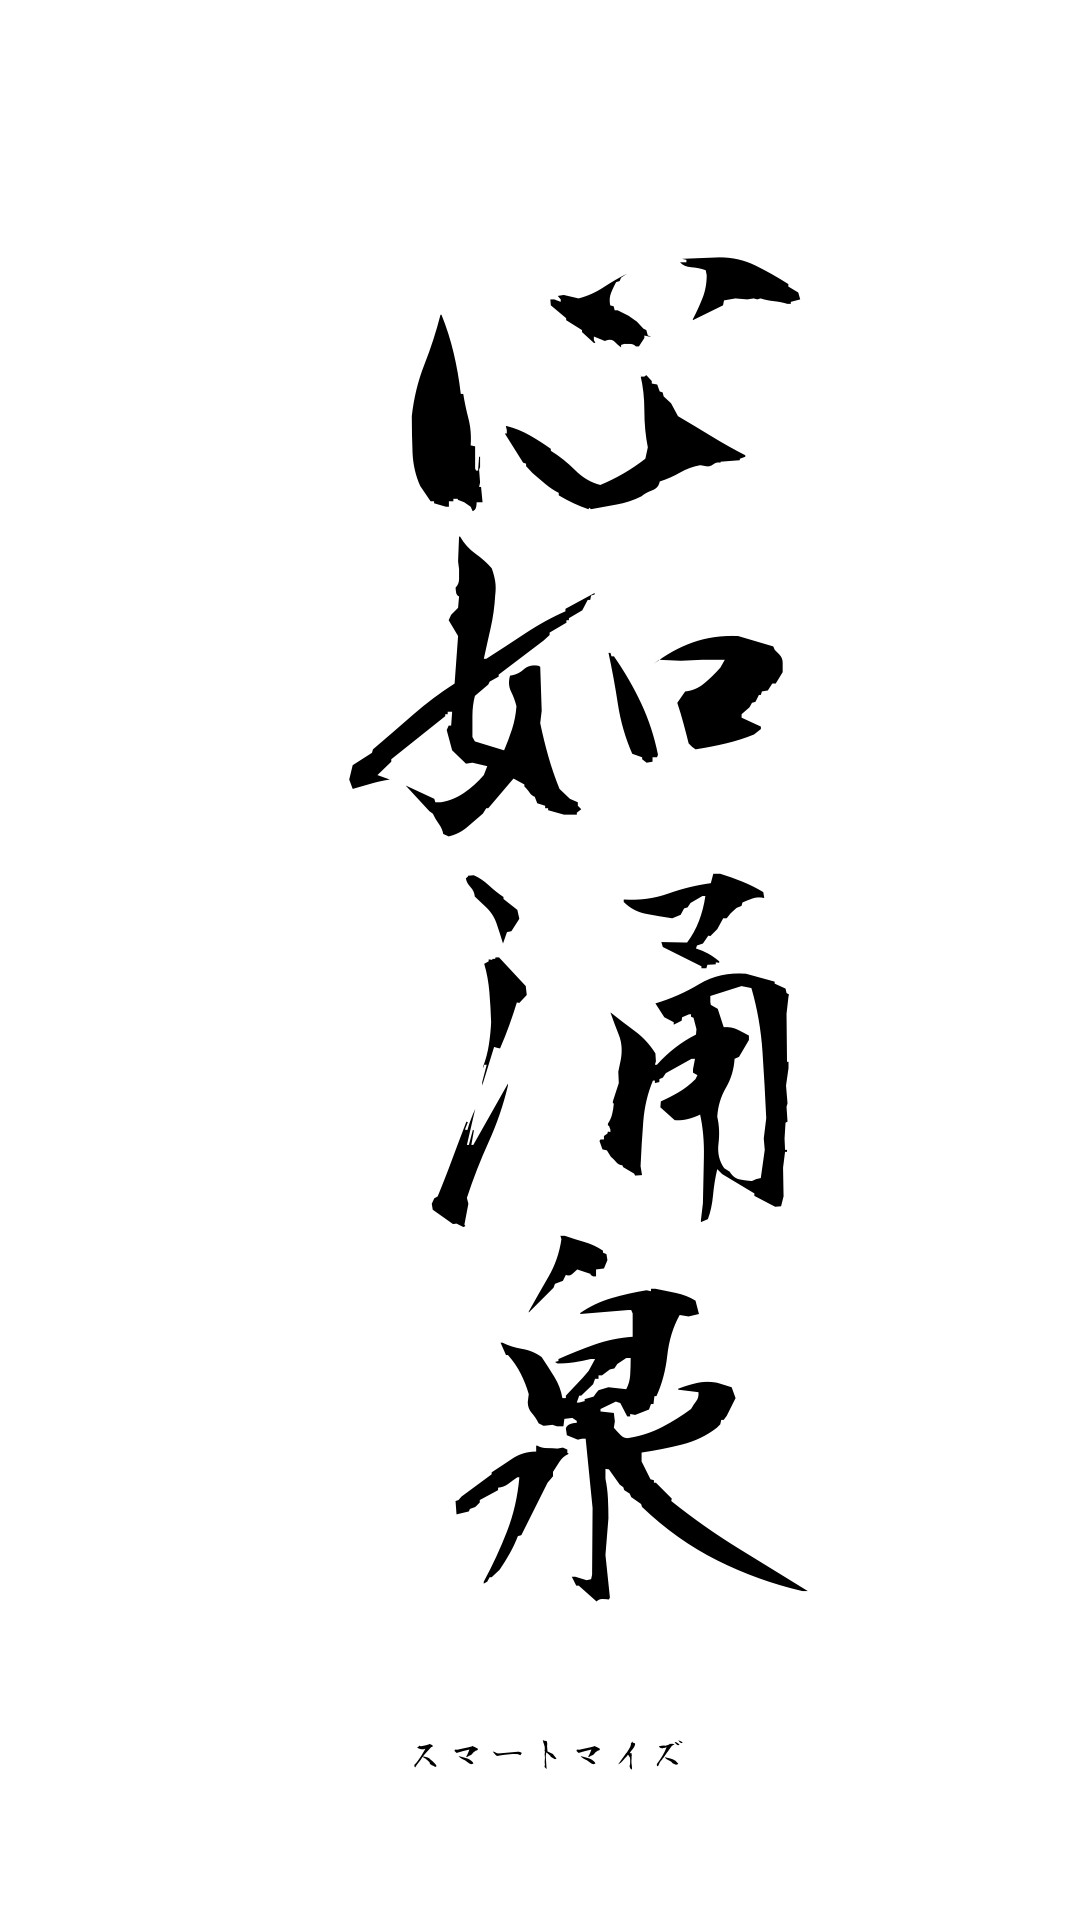 心如涌泉
スマートマイズ